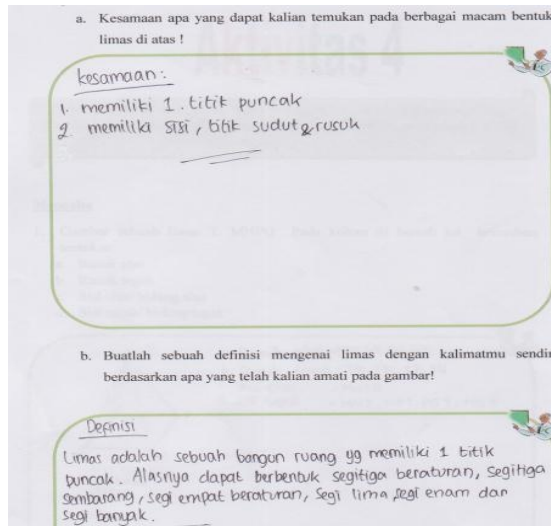 a. Kesamaan apa yang dapat kalian temukan pada berbagai macam bentuk
limas di atas !
kesamaan :
1. memiliki 1. titik puncak
2. memilika sisi, titik sudut & rusuk
b. Buatlah sebuah definisi mengenai limas dengan kalimatmu sendi
berdasarkan apa yang telah kalian amati pada gambar!
Definisi
Limas adalah sebuah bangun ruang yg memiliki 1 titik
puncak. Alasnya dapat berbentuk segitiga beraturan, segitiga
sembarang, segi empat beraturan, segi lima, segi enam dan
segi banyak.